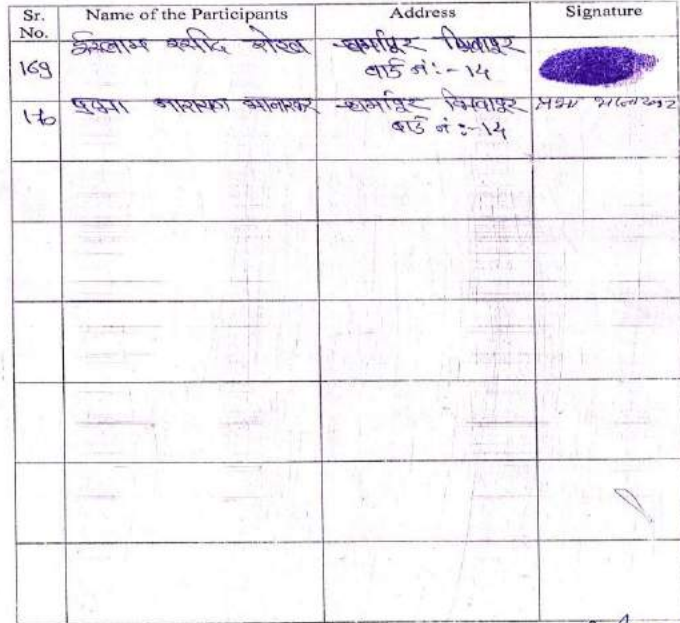 Sr. No. Name of the Participants Address Signature
169 ईस्लाम रसीद शेख धर्मापुर भिवापुर
वार्ड नं :- 14
170 नारायण धर्मापुर भिवापुर
वार्ड नं :- 14